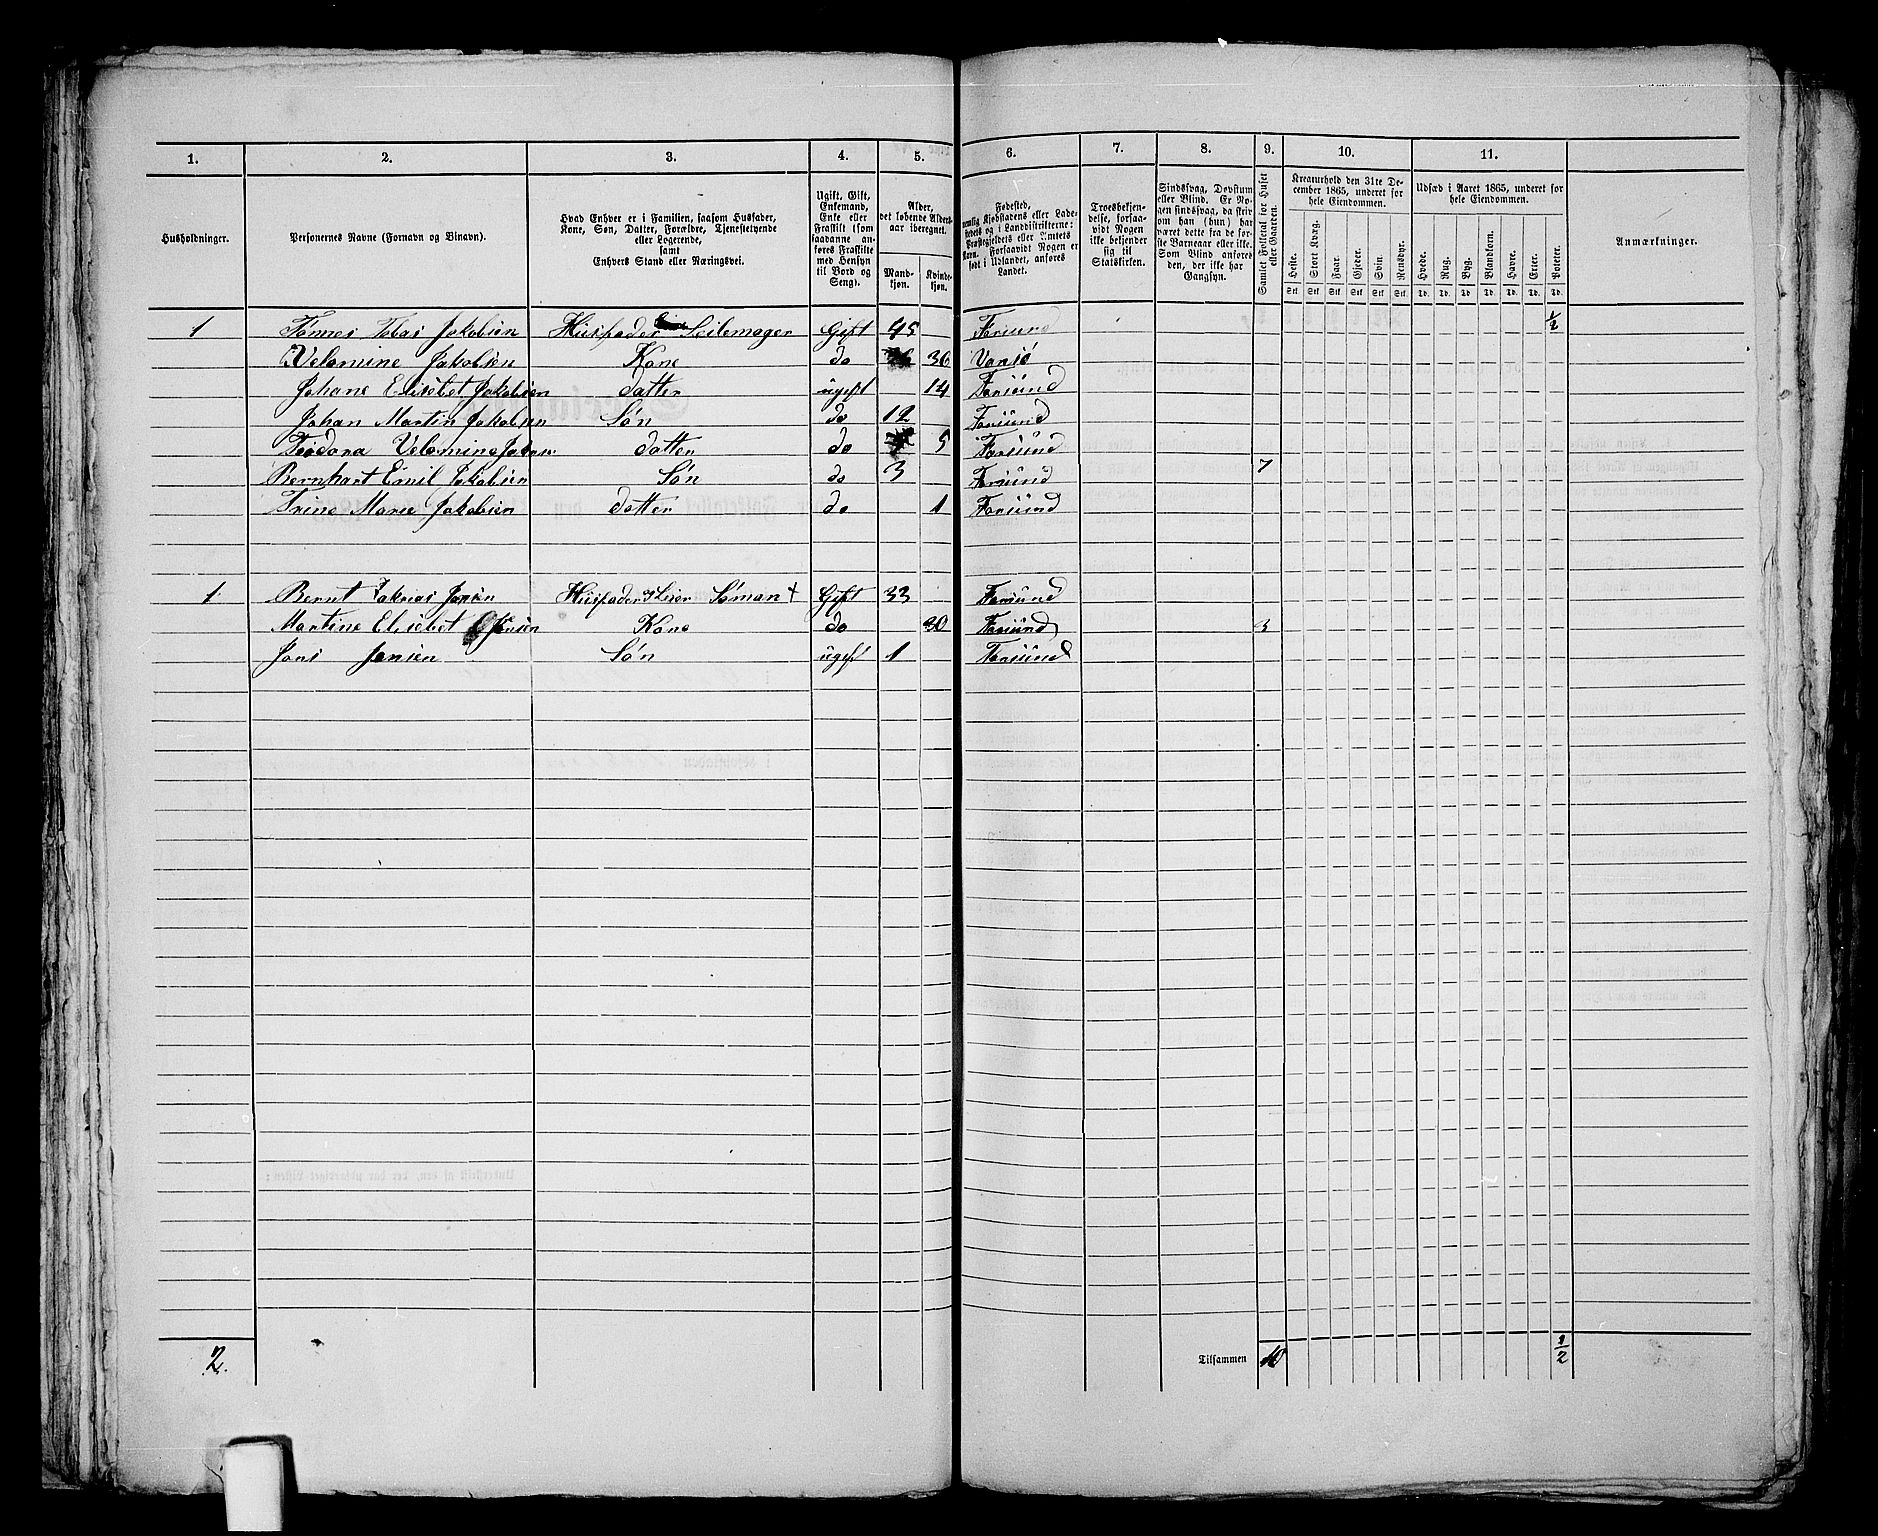 1. 2. 3. 4. 5. 6. 7. 8. 9. 10. 11.
Husholdninger.
Personernes Navne (Fornavn og Binavn).
Hvad Enhver er i Familien, saasom Husfader,
Kone, Søn, Datter, Forældre, Tjenestetyende
eller Logerende,
samt
Enhvers Stand eller Næringsvei.
Ugift, Gift,
Enkemand,
Enke eller
Fraskilt (som
saadanne an-
føres Fraskilte
med Hensyn
til Bord og
Seng).
Alder,
det løbende Alders-
aar iberegnet.
Mand-
kjøn.
Kvinde-
kjøn.
Fødested,
nemlig Kjøbstadens eller Lade-
stedets og i Landdistrikterne:
Præstegjeldets eller Amtets
Navn. Forsaavidt Nogen er
født i Udlandet, anføres
Landet.
Troesbekjen-
delse, forsaa-
vidt Nogen
ikke bekjender
sig til
Statskirken.
Sindssvag, Døvstum
eller Blind. Er No-
gen sindssvag, da skriv
om han (hun) har
været dette fra de før-
ste Barneaar eller ikke.
Som Blind anføres
den, der ikke har
Gangsyn.
Samlet Folketal for Huset
eller Gaarden.
Kreaturhold den 31te De-
cember 1865, underet for
hele Eiendommen.
Heste. Stort Kvæg. Faar. Gjeder. Svin. Rensdyr.
Stk. Stk. Stk. Stk. Stk. Stk.
Udsæd i Aaret 1865, underet for
hele Eiendommen.
Hvede. Rug. Byg. Blandkorn. Havre. Erter. Poteter.
Td. Td. Td. Td. Td. Td. Td.
Anmærkninger.
1 Tönnes Tobas Jakobsen Husfader Seilemager Gift 45 Farsund 1/2
Velomine Jakobsen Kone do 36 Vansö
Johane Elisebet Jakobsen datter ugift 14 Farsund
Johan Martin Jakobsen Søn do 12 Farsund
Teodora Velomine Jakobsen datter do 5 Farsund
Bernhart Emil Jakobsen Søn do 3 Farsund 7
Trine Marie Jakobsen datter do 1 Farsund
1 Bernt Sakrias Jansen Husfader Söman + Gift 33 Farsund
Martine Elisebet Jansen Kone do 30 Farsund 3
Jans Jansen Søn ugift 1 Farsund
2. Tilsammen 10 1/2